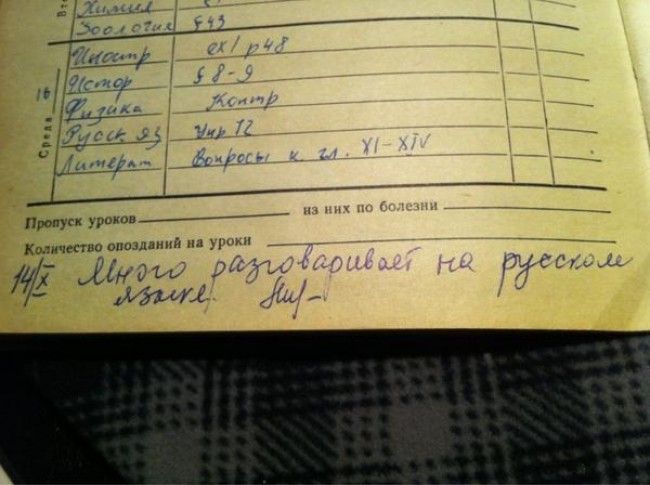 Химия
Зоология § 43
Иностр ex1 p 48
Среда 16
Истор § 8-9
Физика Контр
Русск яз Упр 12
Литерат Вопросы к гл. XI-XIV
Пропуск уроков из них по болезни
Количество опозданий на уроки
14/X Много разговаривает на русском
языке.